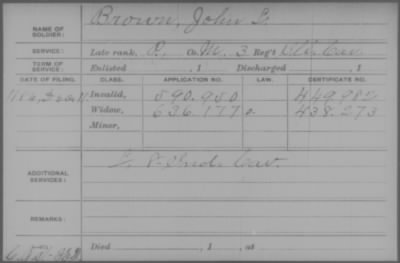 NAME OF SOLDIER: Brown, John
SERVICE: Late rank, P. Co. M, 3 Reg't Ill. Cav.
TERM OF SERVICE: Enlisted , 1 Discharged , 1
DATE OF FILING. CLASS. APPLICATION NO. LAW. CERTIFICATE NO.
Invalid, 590.950 449.982
Widow, 636.177 438.273
Minor,
ADDITIONAL SERVICES: Cav.
REMARKS:
Died , 1 , at